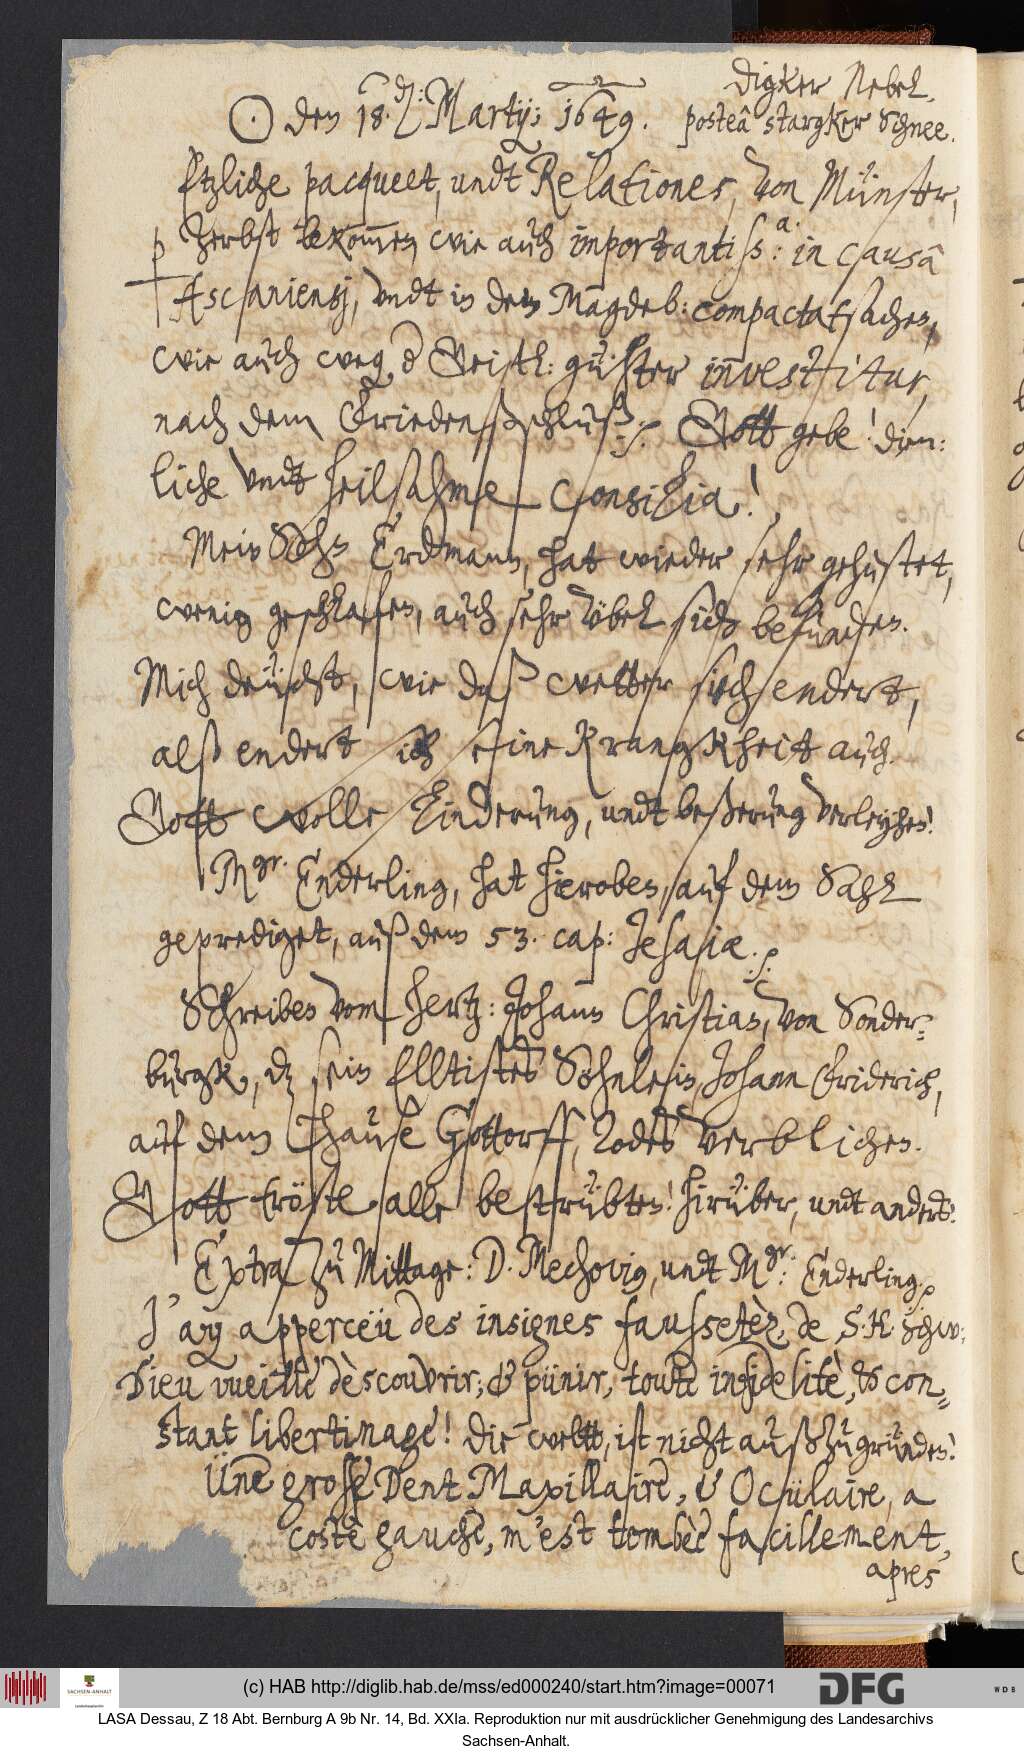 digker Nebel,
posteâ stargker Schnee.
⊙ den 18. d: Martij; 1649.
Etzliche pacqueet, undt Relationes, von Münster,
Zerbst bekommen wie auch importantiss: a: in causâ
Ascaniensj, undt in den Magdeb: compactatsachen,
wie auch weg. d Geistl: gühter investitur,
nach dem Friedensßchluß ./. Gott gebe! dien:
liche undt heilsahme Consilia!
Mein Sohn Erdmann, hat wieder sehr gehustet,
wenig geschlafen, auch sehr übel sich befunden.
Mich deücht, wie daß wetter sich endert,
alß endert sich seine Krangkheit auch.
Gott wolle Linderung, undt beßerung verleyhen!
Mgr. Enderling, hat hieroben, auf dem Sahl
geprediget, auß dem 53. cap: Jesaiæ ./.
Schreiben vom hertz: Johann Christian, von Sonder=
burgk, dz sein Elltistes Söhnlein, Johann Friderich,
auf dem hause Gottorff, Todes verblichen.
Gott tröste alle bestrübten! hirüber, undt anders!
Extra zu Mittage: D. Mechovius, undt Mgr: Enderling ./.
J'ay apperceü des insignes faussetèz, de S. H. Schw:
Dieu vueille dèscouvrir; & pünir, toute infidelitè, & con=
stant libertinage! Die weltt, ist nicht außzugründen!
Üne grosse Dent Maxillaire, & Ocülaire, a
costè gauche, m'est tombèe facillement,
apres
(c) HAB http://diglib.hab.de/mss/ed000240/start.htm?image=00071
SACHSEN-ANHALT
DFG
WDB
LASA Dessau, Z 18 Abt. Bernburg A 9b Nr. 14, Bd. XXIa. Reproduktion nur mit ausdrücklicher Genehmigung des Landesarchivs
Sachsen-Anhalt.